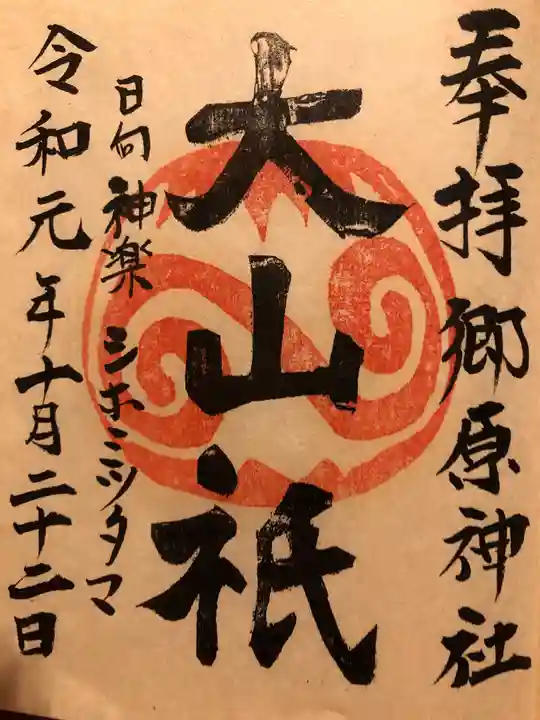 奉拝 郷原神社
大山祇
日向神楽 シホミツタマ
令和元年十月二十二日